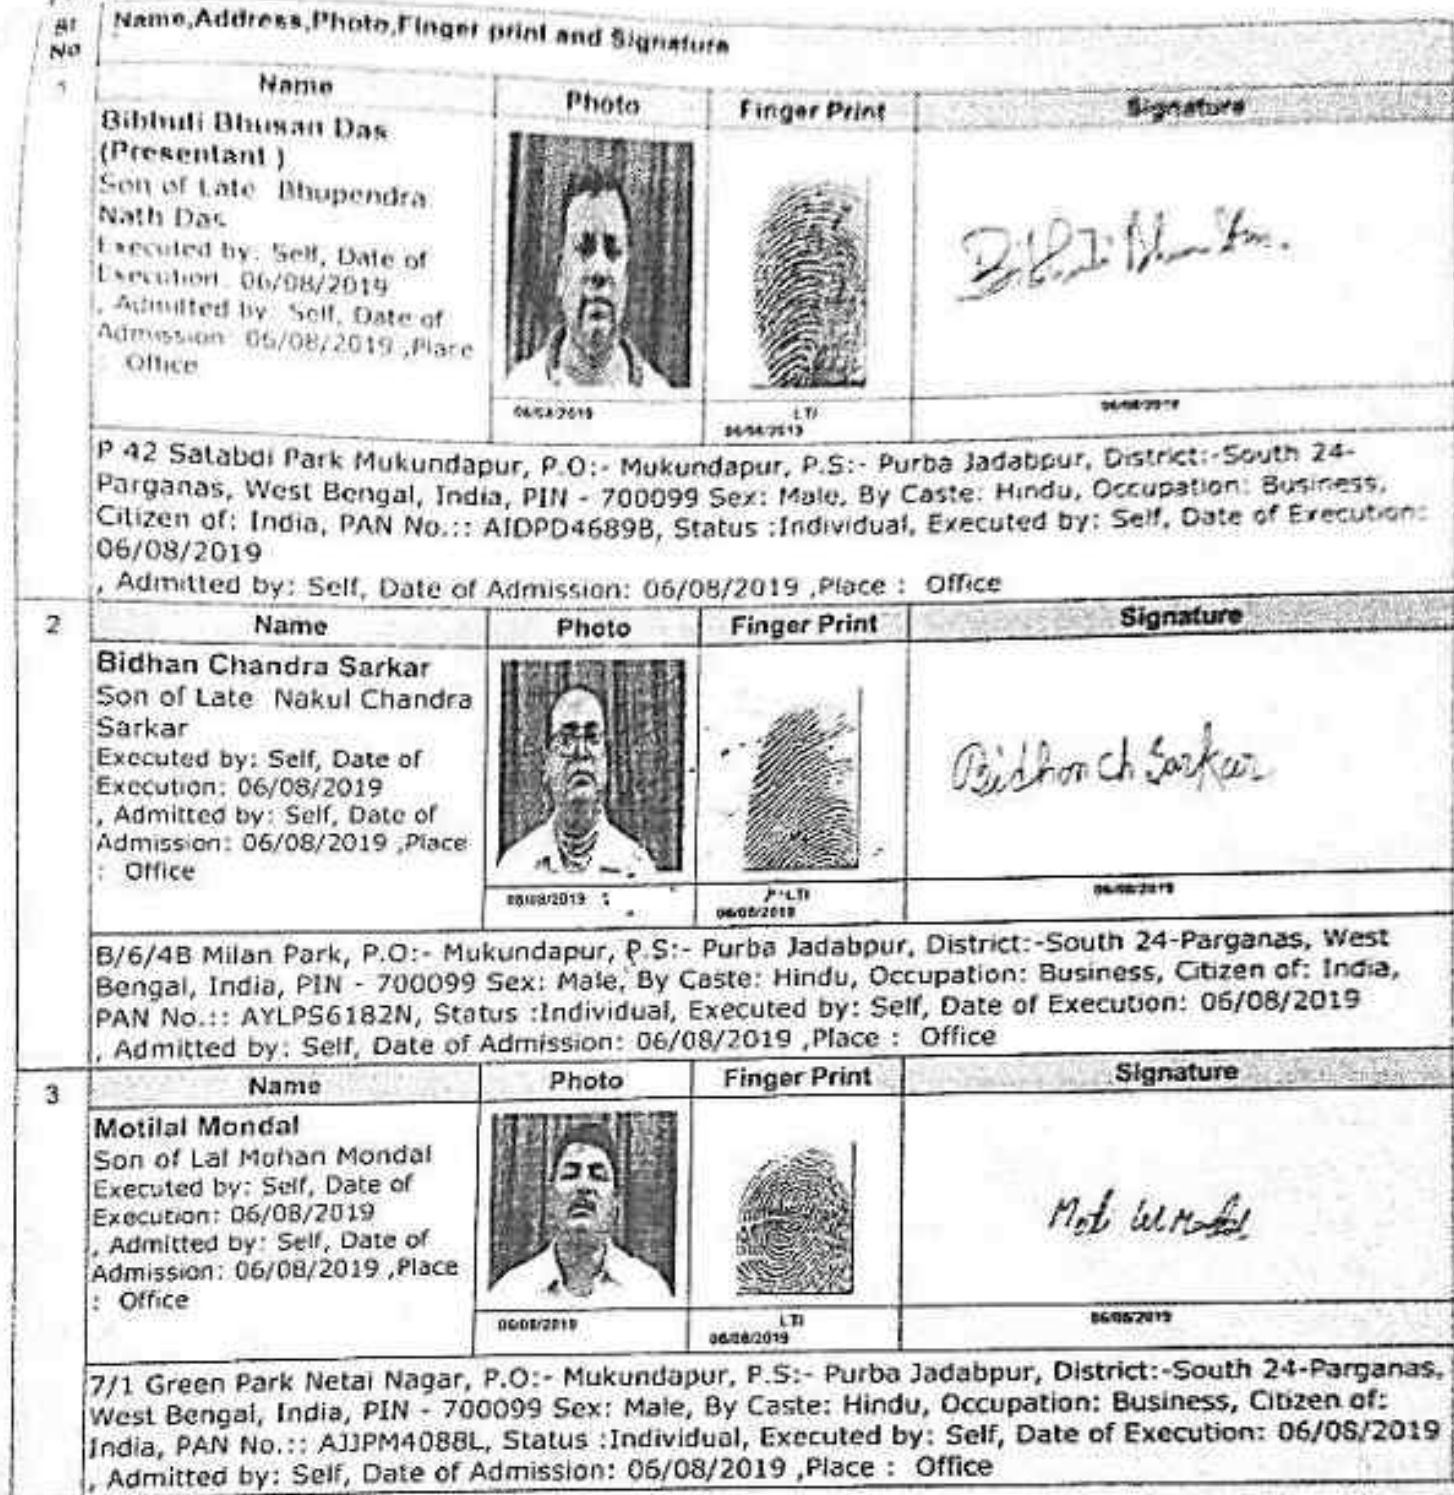 Sl No Name,Address,Photo,Finger print and Signature
1 Name Photo Finger Print Signature
Bibhuti Bhusan Das
(Presentant )
Son of Late Bhupendra
Nath Das
Executed by: Self, Date of
Execution: 06/08/2019
, Admitted by: Self, Date of
Admission: 06/08/2019 ,Place
: Office
Bibhuti Bhusan Das.
06/08/2019 LTI 06/08/2019 06/08/2019
P 42 Satabdi Park Mukundapur, P.O:- Mukundapur, P.S:- Purba Jadabpur, District:-South 24-
Parganas, West Bengal, India, PIN - 700099 Sex: Male, By Caste: Hindu, Occupation: Business,
Citizen of: India, PAN No.:: AIDPD4689B, Status :Individual, Executed by: Self, Date of Execution:
06/08/2019
, Admitted by: Self, Date of Admission: 06/08/2019 ,Place : Office
2 Name Photo Finger Print Signature
Bidhan Chandra Sarkar
Son of Late Nakul Chandra
Sarkar
Executed by: Self, Date of
Execution: 06/08/2019
, Admitted by: Self, Date of
Admission: 06/08/2019 ,Place
: Office
Bidhan Ch Sarkar
06/08/2019 LTI 06/08/2019 06/08/2019
B/6/4B Milan Park, P.O:- Mukundapur, P.S:- Purba Jadabpur, District:-South 24-Parganas, West
Bengal, India, PIN - 700099 Sex: Male, By Caste: Hindu, Occupation: Business, Citizen of: India,
PAN No.:: AYLPS6182N, Status :Individual, Executed by: Self, Date of Execution: 06/08/2019
, Admitted by: Self, Date of Admission: 06/08/2019 ,Place : Office
3 Name Photo Finger Print Signature
Motilal Mondal
Son of Lal Mohan Mondal
Executed by: Self, Date of
Execution: 06/08/2019
, Admitted by: Self, Date of
Admission: 06/08/2019 ,Place
: Office
Moti lal Mondal
06/08/2019 LTI 06/08/2019 06/08/2019
7/1 Green Park Netai Nagar, P.O:- Mukundapur, P.S:- Purba Jadabpur, District:-South 24-Parganas,
West Bengal, India, PIN - 700099 Sex: Male, By Caste: Hindu, Occupation: Business, Citizen of:
India, PAN No.:: AJJPM4088L, Status :Individual, Executed by: Self, Date of Execution: 06/08/2019
, Admitted by: Self, Date of Admission: 06/08/2019 ,Place : Office